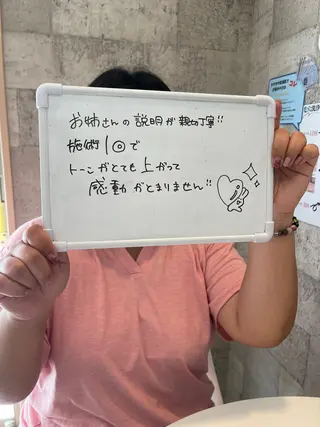 お姉さんの説明が親切丁寧!!
施術1回で
トーンがとても上がって
感動がとまりません!!